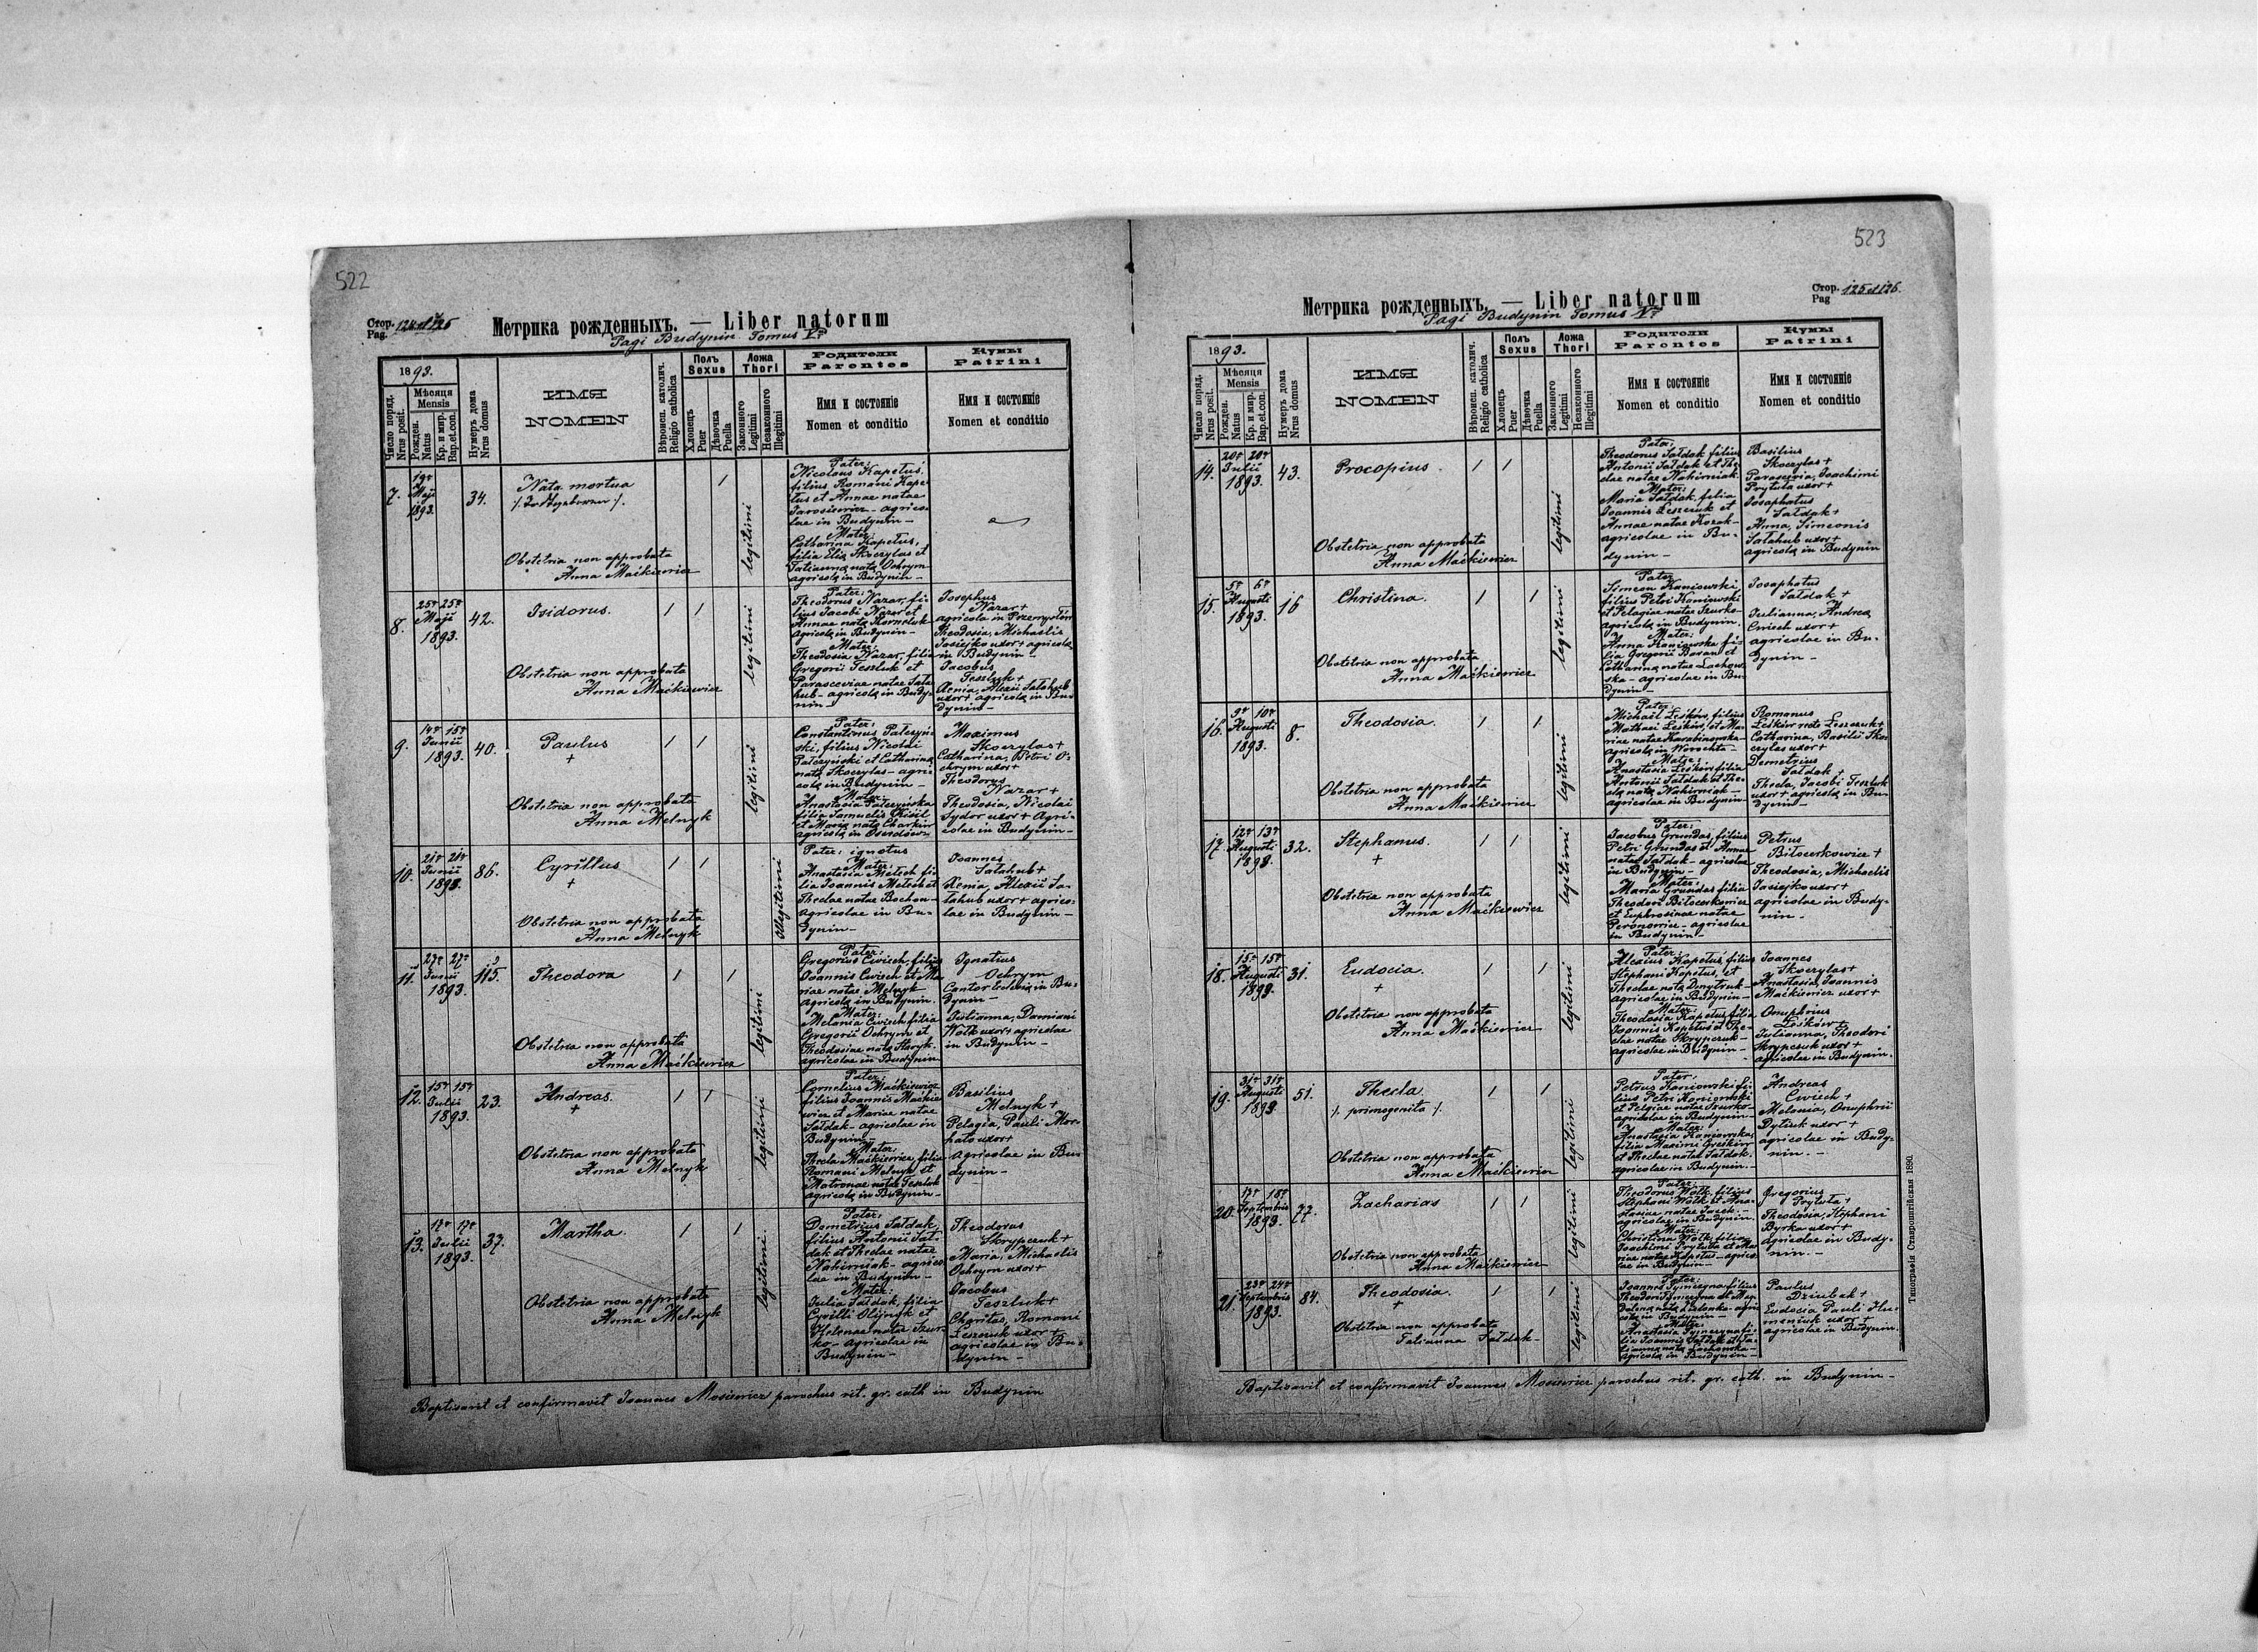 522
Стор.
Pag. 124 et 125
Метрика рожденныхъ. — Liber natorum
Pagi Budynin Tomus V
1893.
Число поряд.
Nrus posit.
Мѣсяця
Mensis
Рожден.
Natus
Кр. и мир.
Bap.et.con.
Нумеръ дома
Nrus domus
ИМЯ
NOMEN
Вѣроисп. католич.
Religio catholica
Полъ
Sexus
Хлопецъ
Puer
Дѣвочка
Puella
Ложа
Thori
Законного
Legitimi
Незаконного
Illegitimi
Родители
Parentes
Имя и состояніе
Nomen et conditio
Кумы
Patrini
Имя и состояніе
Nomen et conditio
7.
19a
Maji
1893.
34.
Nata mortua
Obstetrix non approbata
Anna Maćkiewicz
/
legitimi
Pater:
Nicolaus Kapetus,
filius Romani Kape-
tus et Annae natae
Jarosiewicz - agrico-
lae in Budynin -
Mater:
Catharina Kapetus,
filia Eliae Skoczylas et
Tatianna nata Ochrym
agricolae in Budynin -
8.
25a 25a
Maji
1893.
42.
Isidorus.
Obstetrix non approbata
Anna Maćkiewicz
/ /
legitimi
Pater:
Theodorus Nazar, fi-
lius Jacobi Nazar et
Annae nata Korneluk
agricolae in Budynin -
Mater:
Theodosia Nazar, filia
Gregorii Teszluk et
Parasceviae natae Sała-
hub - agricolae in Budy-
nin -
Josephus
Nazar +
agricola in
Theodosia, Michaelis
Jasiejko uxor + agricolae
in Budynin -
Jacobus
Teszluk +
Xenia, Alexii Sałahub
uxor + agricolae in Bu-
dynin -
9.
14a 15a
Junii
1893.
40.
Paulus
+
Obstetrix non approbata
Anna Melnyk
/ /
legitimi
Pater:
Constantinus Pałczyń-
ski, filius Nicolai
Pałczyński et Catharinae
nata Skoczylas - agri-
colae in Budynin -
Mater:
Anastasia Pałczyńska
filia Samuelis Kisił
et Maria nata
agricolae in
Maximus
Skoczylas +
Catharina, Petri O-
chrym uxor +
Theodorus
Nazar +
Theodosia, Nicolai
Sydor uxor + Agri-
colae in Budynin -
10.
21a 21a
Junii
1893.
86.
Cyrillus
+
Obstetrix non approbata
Anna Melnyk
/ /
illegitimi
Pater: ignotus
Mater:
Anastasia Melech fi-
lia Joannis Melech et
Theclae natae Bochon -
agricolae in Bu-
dynin -
Joannes
Sałahub +
Xenia, Alexii Sa-
łahub uxor + agrico-
lae in Budynin -
11.
27a 27a
Junii
1893.
115.
Theodora
Obstetrix non approbata
Anna Maćkiewicz
/ /
legitimi
Pater:
Gregorius Ćwiech, filius
Joannis Ćwiech et Ma-
riae natae Melnyk
agricolae in Budynin.
Mater:
Melania Ćwiech filia
Gregorii Ochrym et
Theodosiae nata Staryk -
agricolae in Budynin
Ignatius
Ochrym
Cantor Ecclesiae in Bu-
dynin -
Julianna, Damiani
Wołk uxor + agricolae
in Budynin -
12.
15a 15a
Julii
1893.
23.
Andreas.
+
Obstetrix non approbata
Anna Melnyk
/ /
legitimi
Pater:
Cornelius Maćkiewicz
filius Joannis Maćkie-
wicz et Mariae natae
Sałdak - agricolae in
Budynin -
Mater:
Thecla Maćkiewicz, filia
Romani Melnyk et
Matronae natae Teszluk
agricolae in Budynin -
Basilius
Melnyk +
Pelagia, Pauli Mor-
hato uxor +
agricolae in Bu-
dynin -
13.
17a 17a
Julii
1893.
37.
Martha.
Obstetrix non approbata
Anna Melnyk
/ /
legitimi.
Pater:
Demetrius Sałdak,
filius Antonii Sał-
dak et Theclae natae
Nahirniak - agrico-
lae in Budynin -
Mater:
Julia Sałdak, filia
Cyrilli Olijnyk et
Helenae natae Szur-
ko - agricolae in
Budynin -
Theodorus
Skrypczuk +
Maria, Michaelis
Ochrym uxor +
Jacobus
Teszluk +
Charitas, Romani
Leszczuk uxor +
agricolae in Bu-
dynin -
Baptisavit et confirmavit Joannes Mosiewicz parochus rit. gr. cath in Budynin
523
Стор.
Pag 125 et 126.
Метрика рожденныхъ. — Liber natorum
Pagi Budynin Tomus V
1893.
Число поряд.
Nrus posit.
Мѣсяця
Mensis
Рожден.
Natus
Кр. и мир.
Bap.et.con.
Нумеръ дома
Nrus domus
ИМЯ
NOMEN
Вѣроисп. католич.
Religio catholica
Полъ
Sexus
Хлопецъ
Puer
Дѣвочка
Puella
Ложа
Thori
Законного
Legitimi
Незаконного
Illegitimi
Родители
Parentes
Имя и состояніе
Nomen et conditio
Кумы
Patrini
Имя и состояніе
Nomen et conditio
14.
20a 20a
Julii
1893.
43.
Procopius.
Obstetrix non approbata
Anna Maćkiewicz
/ /
legitimi
Pater:
Theodorus Sałdak filius
Antonii Sałdak et The-
clae natae Nahirniak
Mater:
Maria Sałdak, filia
Joannis Leszczuk et
Annae natae Kozak -
agricolae in Bu-
dynin -
Basilius
Skoczylas +
Parascevia, Joachimi
Prytuła uxor +
Josaphatus
Sałdak +
Anna, Simeonis
Sałahub uxor +
agricolae in Budynin
15.
5a 6a
Augusti
1893.
16
Christina.
Obstetrix non approbata
Anna Maćkiewicz
/ /
legitimi
Pater:
Simeon Kaniowski,
filius Petri Kaniowski
et Pelagiae natae Szurko -
agricolae in Budynin.
Mater:
Anna Kaniowska fi-
lia Gregorii Baran et
Catharinae natae Lachow-
ska - agricolae in Bu-
dynin -
Josaphatus
Sałdak +
Julianna, Andreae
Ćwiech uxor +
agricolae in Bu-
dynin -
16.
9a 10a
Augusti
1893.
8.
Theodosia.
Obstetrix non approbata
Anna Maćkiewicz
/ /
legitimi
Pater:
Michael Leśków, filius
Mathaei Leśków, et Ma-
riae natae Harabinowska -
agricolae in Worochta -
Mater:
Anastasia Leśków filia
Antonii Sałdak et The-
clae nata Nahirniak -
agricolae in Budynin -
Romanus
Leśków nate Leszczuk +
Catharina, Basilii Sko-
czylas uxor +
Demetrius
Sałdak +
Thecla, Jacobi Teszluk
uxor + agricolae in Bu-
dynin -
17.
12a 13a
Augusti
1893.
32.
Stephanus.
+
Obstetrix non approbata
Anna Maćkiewicz
/ /
legitimi
Pater:
Jacobus Grundas, filius
Petri Grundas et Annae
natae Sałdak - agricolae
in Budynin -
Mater:
Maria Grundas filia
Theodori Biłocerkowicz
et Euphrosinae natae
Peronowicz - agricolae
in Budynin -
Petrus
Biłocerkowicz +
Theodosia, Michaelis
Jasiejko uxor +
agricolae in Budy-
nin -
18.
15a 15a
Augusti
1893.
31.
Eudocia.
+
Obstetrix non approbata
Anna Maćkiewicz
/ /
legitimi
Pater:
Alexius Kapetus, filius
Stephani Kapetus, et
Theclae nata Dmytruk -
agricolae in Budynin -
Mater:
Theodosia Kapetus filia
Joannis Kapetus et The-
clae natae Skrypczuk -
agricolae in Budynin -
Joannes
Skoczylas +
Anastasia, Joannis
Maćkiewicz uxor +
Onuphrius
Leśków +
Julianna, Theodori
Skrypczuk uxor +
agricolae in Budynin.
19.
31a 31a
Augusti
1893
51.
Thecla
/. primogenita /.
Obstetrix non approbata
Anna Maćkiewicz
/ /
legitimi
Pater:
Petrus Kaniowski fi-
lius Petri Kaniowski
et Pelgiae natae Szurko -
agricolae in Budynin -
Mater:
Anastasia Kaniowska,
filia Maximi Greśków
et Theclae natae Sałdak.
agricolae in Budynin. -
Andreas
Ćwiech +
Melania, Onuphrii
Dytiuk uxor +
agricolae in Budy-
nin. -
20.
17a 18a
Septembris
1893.
77.
Zacharias
Obstetrix non approbata
Anna Maćkiewicz
/ /
legitimi
Pater:
Theodorus Wołk filius
Stephani Wołk et Ana-
stasiae natae -
agricolae in Budynin.
Mater:
Christina Wołk, filia
Joachimi Prytuła et Ma-
riae natae Kapetus - agrico-
lae in Budynin -
Gregorius
Prytuła +
Theodosia, Stephani
Byrka uxor +
agricolae in Budy-
nin. -
21.
23a 24a
Septembris
1893.
84.
Theodosia.
+
Obstetrix non approbata
Tatianna Sałdak -
/ /
legitimi
Pater:
Joannes Tymczyna filius
Theodori Tymczyna et Mag-
dalenae nata - agri-
colae in Budynin -
Mater:
Anastasia Tymczyna fi-
lia Joannis Sałdak et Ta-
tiannae nata Lachowska -
agricolae in Budynin -
Paulus
Dziubak +
Eudocia Pauli Hu-
meniuk uxor +
agricolae in Budynin.
Baptisavit et confirmavit Joannes Mosiewicz parochus rit. gr. cath. in Budynin -
Типографія Ставропигійская 1890.